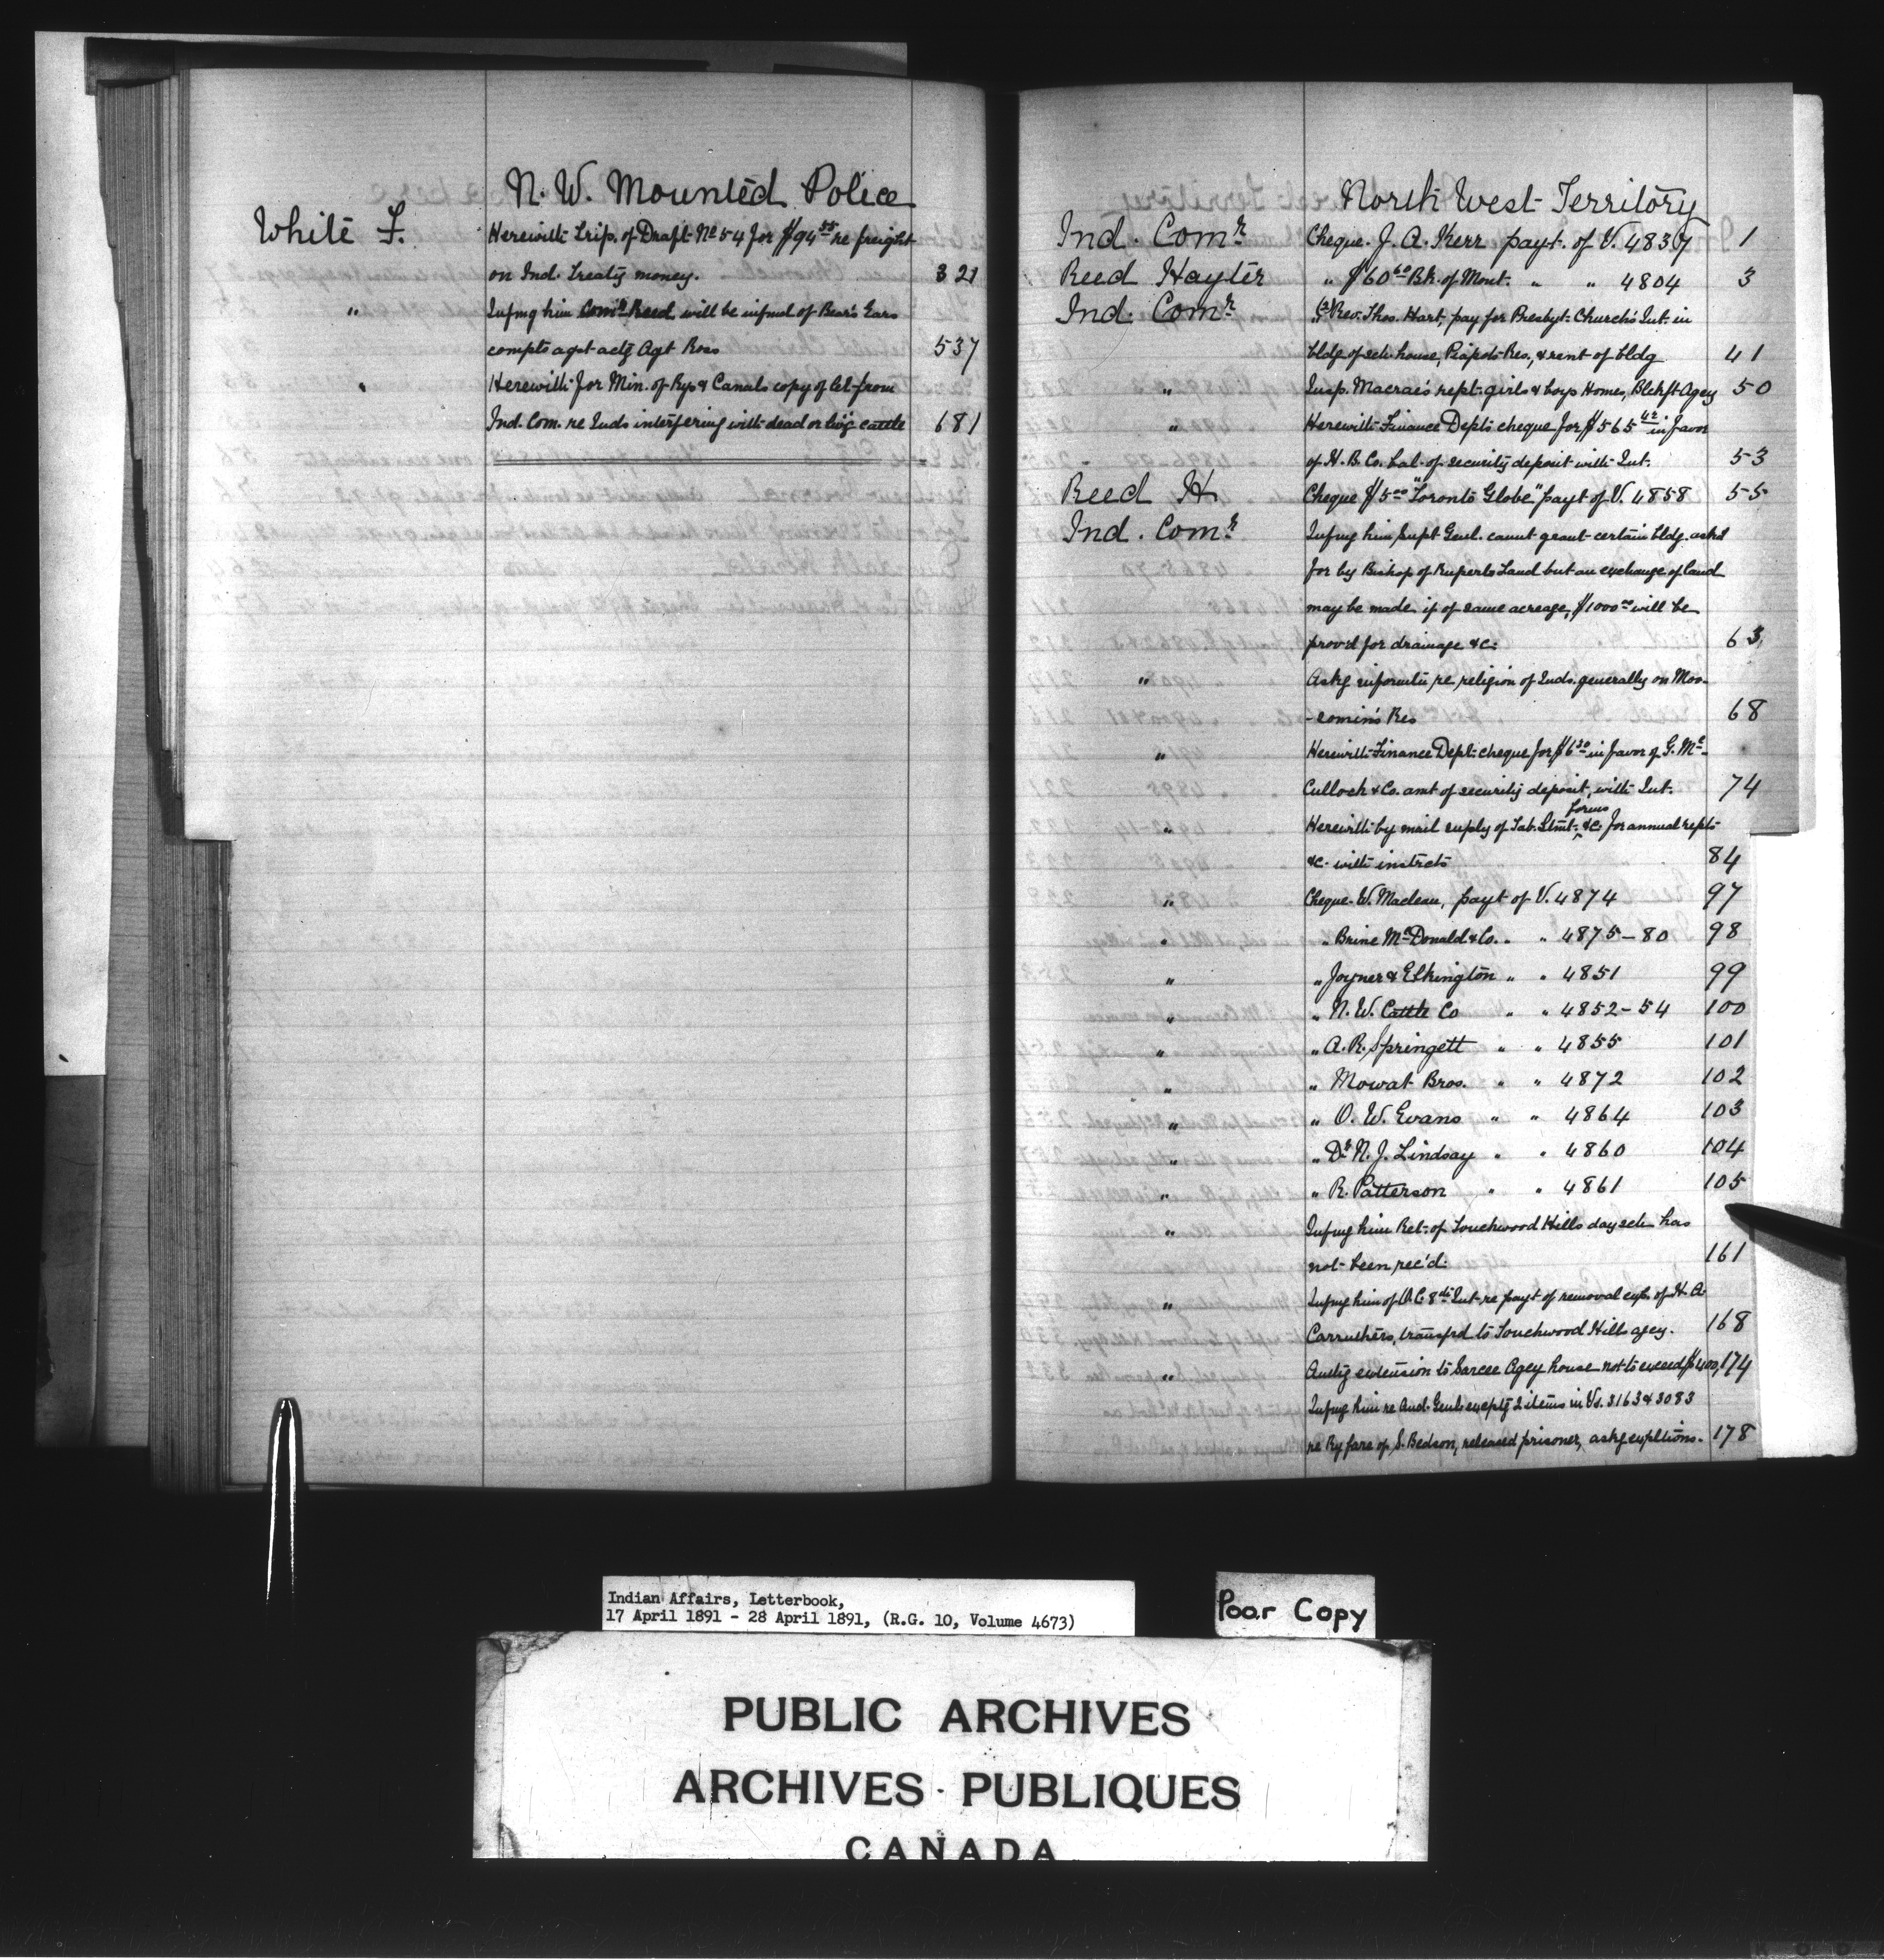 N. W. Mounted Police
White F. Herewith Trip. of Draft No 54 for $94 55 re freight
on Ind. Treaty money. 321
" Infmg him Comr Reed will be infmd of Bear's Ears
compts agst actg Agt Ross 537
" Herewith for Min. of Rys & Canals copy of let from
Ind. Com. re Inds interfering with dead or livg cattle 681
North West Territory
Ind. Comr Cheque. J. A. Kerr payt. of V. 4837 1
Reed Hayter " $60 60 Bk. of Mont. " " 4804 3
Ind. Comr " (2) Rev. Thos. Hart, pay for Presbyt. Church's Int. in
bldg of sch. house, Piapots Res., & rent of bldg 41
" Insp. Macrae's rept. girls & boys Homes, Blckft Agcy 50
" Herewith Finance Dept's cheque for $565 42 in favor
of H. B. Co. bal. of security deposit with Int. 53
Reed H Cheque $5 00 "Toronto Globe" payt of V. 4858 55
Ind. Comr Infmg him Supt Genl. cannt grant certain bldg. askd
for by Bishop of Ruperts Land but an exchange of land
may be made if of same acreage, $1000 00 will be
prov'd for drainage &c. 63
" Askg informtn re religion of Inds. generally on Moo-
-somin's Res 68
" Herewith Finance Dept. cheque for $6 30 in favor of G. Mc-
Culloch & Co. amt of security deposit, with Int. 74
forms
" Herewith by mail supply of Tab. Stmt. &c. for annual repts
&c. with instrcts 84
" Cheque. W. Maclean, payt of V. 4874 97
" " Brine McDonald & Co. " " 4875-80 98
" " Joyner & Elkington " " 4851 99
" " N. W. Cattle Co " " 4852-54 100
" " A. R. Springett " " 4855 101
" " Mowat Bros. " " 4872 102
" " O. W. Evans " " 4864 103
" " Dr N. J. Lindsay " " 4860 104
" " R. Patterson " " 4861 105
" Infmg him Ret. of Touchwood Hills day sch. has
not been rec'd. 161
" Infmg him of O.C. 8th Inst re payt of removal exps. of H. A.
Carruthers, transfd to Touchwood Hills agcy. 168
" Authg extension to Sarcee Agcy house not to exceed $400, 174
Infmg him re Aud. Genl. exceptg 2 items in Vs. 3163 & 3083
re Ry fare of S. Bedson, released prisoner, askg expltions. 178
Indian Affairs, Letterbook,
17 April 1891 - 28 April 1891, (R.G. 10, Volume 4673)
Poor Copy
PUBLIC ARCHIVES
ARCHIVES PUBLIQUES
CANADA